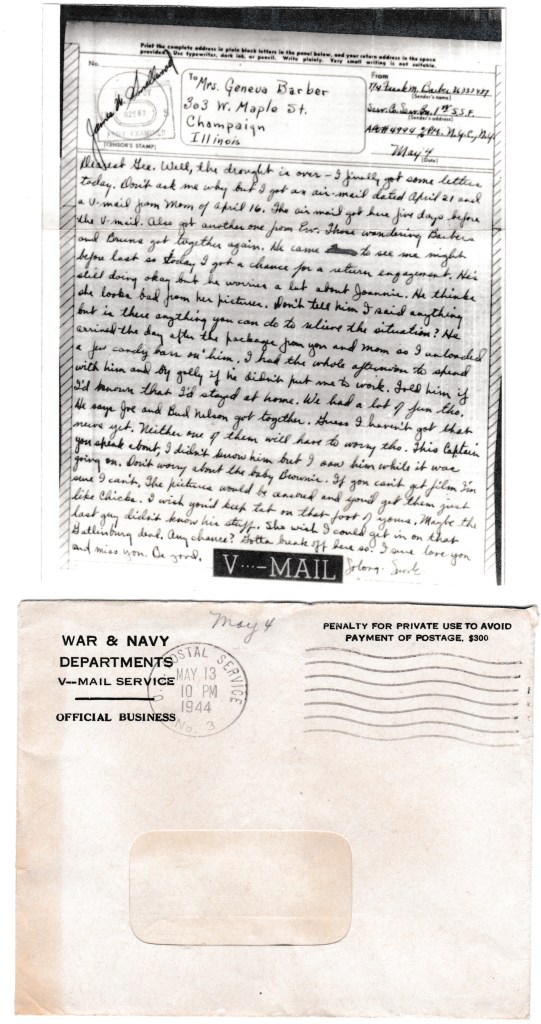 Print the complete address in plain block letters in the panel below, and your return address in the space
provided. Use typewriter, dark ink, or pencil. Write plainly. Very small writing is not suitable.
No.
(CENSOR'S STAMP)
To
Mrs. Geneva Barber
303 W. Maple St.
Champaign
Illinois
From
Barber
(Sender's name)
Serv. Co. Serv. Bn. 1st S.S.F.
(Sender's address)
A.P.O. #4994 % P.M. N.Y.C., N.Y.
May 4
(Date)
Dearest Gee. Well, the drought is over – I finally got some letters
today. Don't ask me why but I got an air-mail dated April 21 and
a V-mail from Mom of April 16. The air mail got here five days before
the V-mail. Also got another one from Those wandering Barbers
and Bruno got together again. He came to see me night
before last so today I got a chance for a return engagement. He's
still doing okay but he worries a lot about Joannie. He thinks
she looks bad from her pictures. Don't tell him I said anything
but is there anything you can do to relieve the situation? He
arrived the day after the package from you and mom so I unloaded
a few candy bars on him. I had the whole afternoon to spend
with him and by golly if he didn't put me to work. Told him if
I'd known that I'd stayed at home. We had a lot of fun tho.
He says Joe and Bud Nelson got together. Guess I haven't got that
news yet. Neither one of them will have to worry tho. This Captain
you speak about, I didn't know him but I saw him while it was
going on. Don't worry about the baby Brownie. If you can't get film I'm
sure I can't. The pictures would be censored and you'd get them just
like Chicks. I wish you'd keep tab on that foot of yours. Maybe the
last guy didn't know his stuff. She wish I could get in on that
Gatlinburg deal. Any chance? Gotta break off here so. I sure love you
and miss you. Be good.
V···–MAIL
Solong.
May 4
WAR & NAVY
DEPARTMENTS
V---MAIL SERVICE
OFFICIAL BUSINESS
POSTAL SERVICE
MAY 13
10 PM
1944
No. 3
PENALTY FOR PRIVATE USE TO AVOID
PAYMENT OF POSTAGE, $300